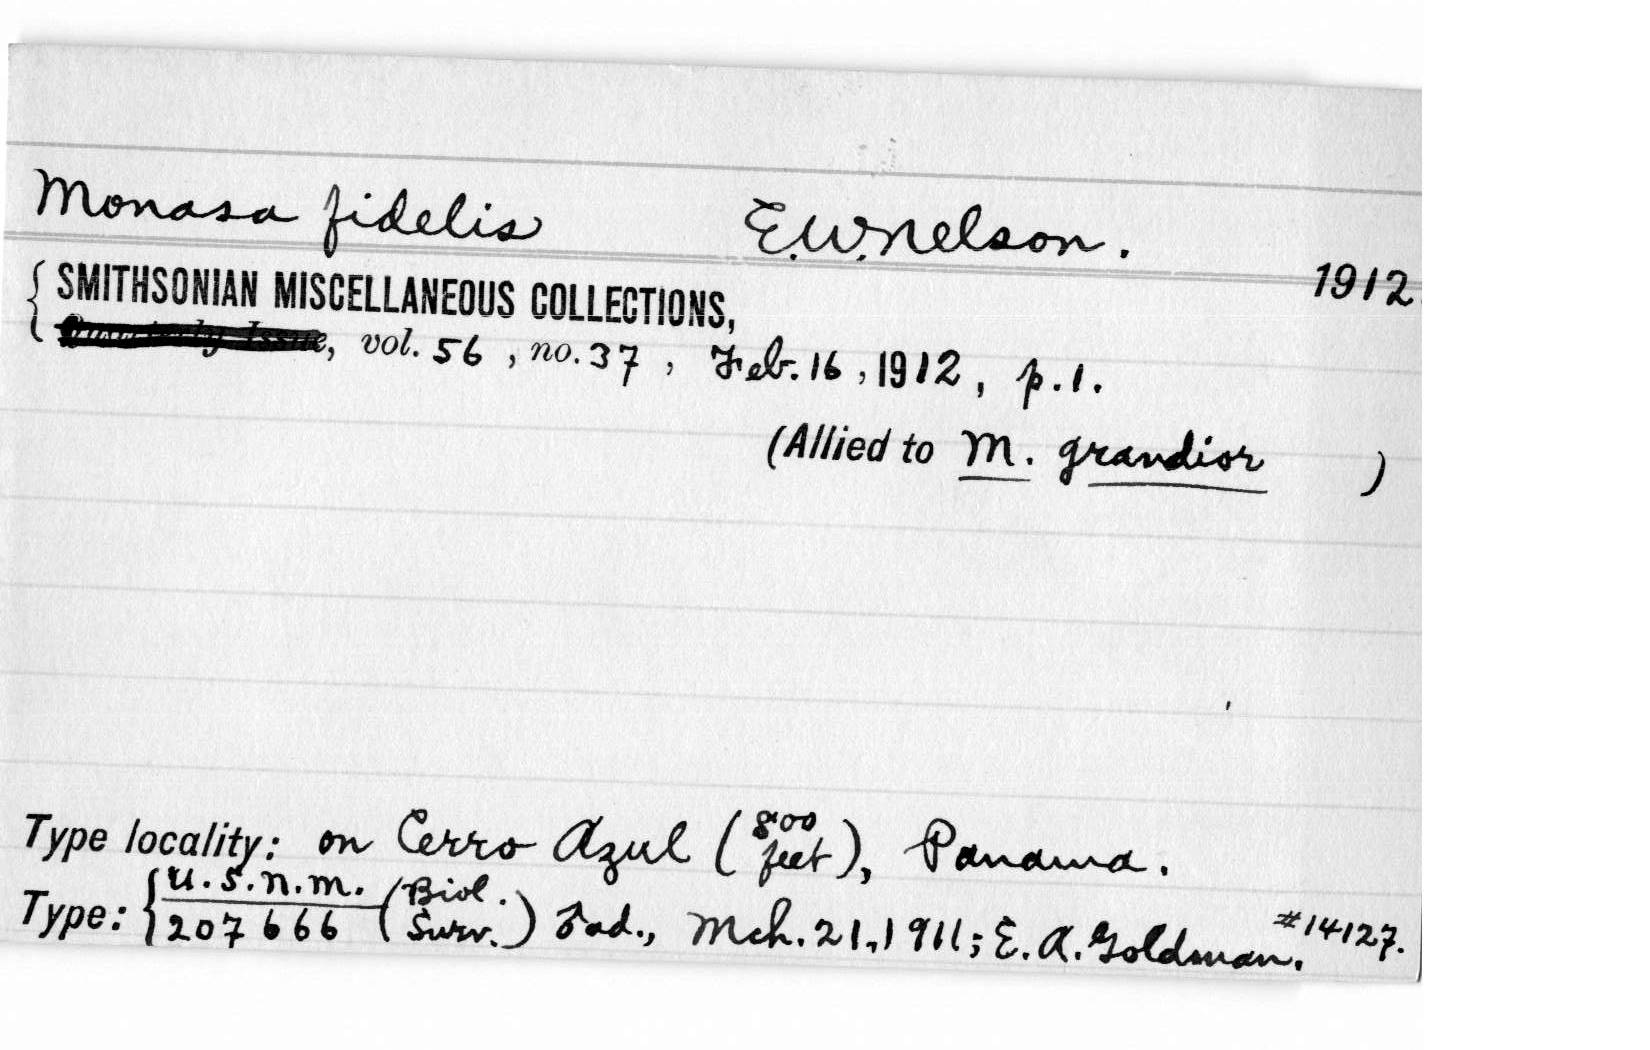 Monasa fidelis E.W.Nelson.
1912.
SMITHSONIAN MISCELLANEOUS COLLECTIONS,
Quarterly Issue, vol. 56, no. 37, Feb. 16, 1912, p.1.
(Allied to M. grandior )
Type locality: on Cerro Azul (800 feet), Panama.
Type: { U.S.N.M. 207666 (Biol. Surv.) ♂ad., Mch. 21, 1911; E.A. Goldman. #14127.